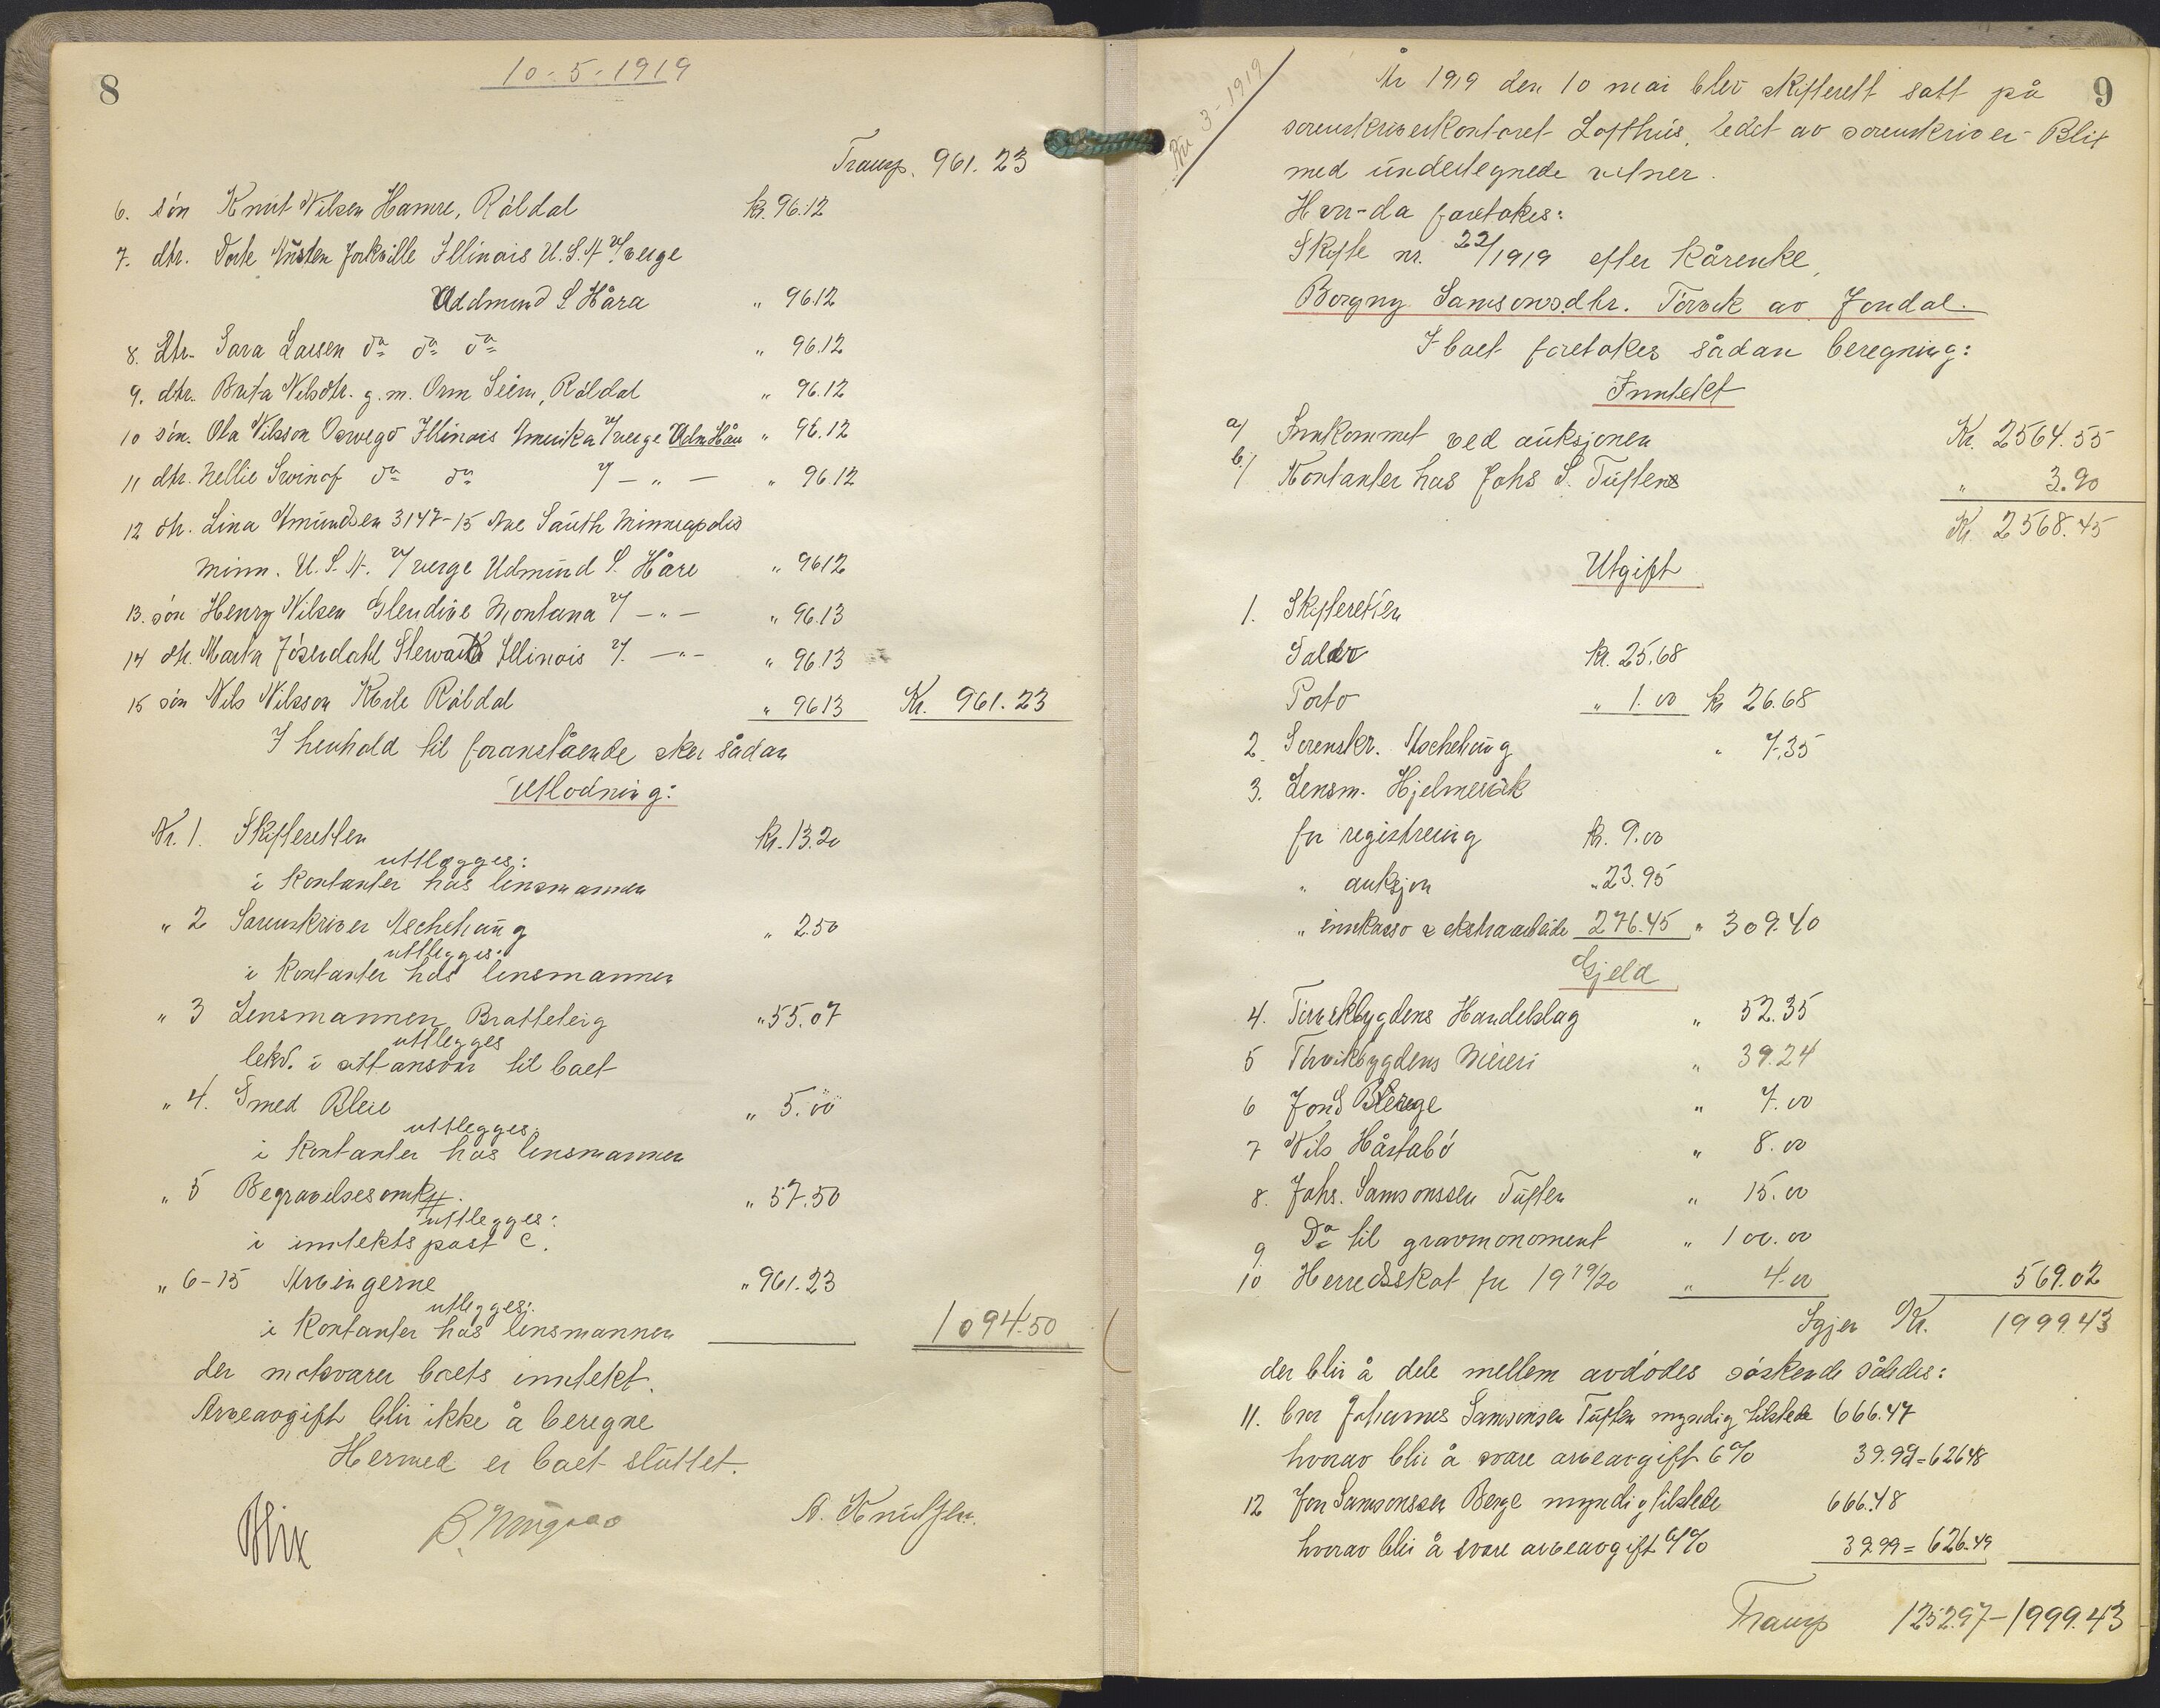 8
10-5-1919
Transp. 961.23
6. søn Knut Nilsen Hamre, Røldal kr. 96.12
7. dtr. Illinois U.S.A. v/verge
Uddmund S Håra " 96.12
8. Dtr. Sara Larsen do do do " 96.12
9. dtr. Brita Nilsdtr. g. m. Orm Seim, Røldal " 96.12
10 søn. Ola Nilsson Oswego Illinois Amerika v/verge " 96.12
11 dtr. Nellie do do v/ - " - " 96.12
12 dtr. Lina Amundsen 3147-15 Ave South Minneapolis
Minn. U.S.A. v/verge Udmund S. Håre " 9612
13. søn Henry Nilsen Glendive Montana v/ - " - " 96.13
14 dtr. Marta Jøsendahl Steward Illinois v/. - " - " 96.13
15 søn Nils Nilsson Røldal " 9613 Kr. 961.23
I henhold til foranstående sker sådan
Utlodning:
Nr. 1. Skifteretten kr. 13.20
uttlægges:
i kontanter hos lensmannen
" 2 Sorenskriver Aschehoug " 2.50
uttlegges:
i kontanter hos lensmannen
" 3 Lensmannen Bratteteig " 55.07
uttlegges
til boet
" 4. Smed Bleie " 5.00
uttlegges:
i kontanter hos lensmannen
" 5 Begravelsesomk. " 57.50
uttlegges:
i inntekts post c.
" 6-15 Arvingerne " 961.23
utlegges:
i kontanter hos lensmannen 1094.50
der motsvarer boets inntekt.
Arveavgift blir ikke å beregne
Hermed er boet sluttet.
Blix A. Knutsen
9
Nr 3-1919
År 1919 den 10 mai blev skifterett satt på
sorenskriverkontoret Lofthus, ledet av sorenskriver Blix
med undertegnede vitner.
Hvor-da foretokes:
Skifte nr. 22/1919 efter kårenke,
Borgny Samsonsdtr. Torvik av Jondal.
I boet foretokes sådan beregning:
Inntekt
a/ Innkommet ved auksjonen Kr. 2564.55
b/ Kontanter hos Johs S. Tuften " 3.90
Kr. 2568.45
Utgift
1. Skifteretten
Kr. 25.68
Porto " 1.00 kr 26.68
2. Sorenskr. Aschehoug " 7.35
3. Lensm. Hjelmevik
for registrering kr. 9.00
" auksjon " 23.95
" innkasso & ekstraarbeide 276.45 " 309.40
Gjeld
4. Torvikbygdens Handelslag " 52.35
5 Torvikbygdens Meieri " 39.24
6 Jond Berge " 7.00
7 Nils Håstabø " 8.00
8. Johs. Samsonssen Tuften " 15.00
9. Do til gravmonoment " 100.00
10 Herredsskat for 1919/20 " 4.00 569.02
Igjen Kr. 1999.43
der blir å dele mellem avdødes søskende således:
11. bror Johannes Samsonsen Tuften myndig tilstede 666.47
hvorav blir å svare arveavgift 6% 39.99=626.48
12 Jon Samsonssen Berge myndig tilstede 666.48
hvorav blir å svare arveavgift 6% 39.99 = 626.49
Transp 1252.97-1999.43